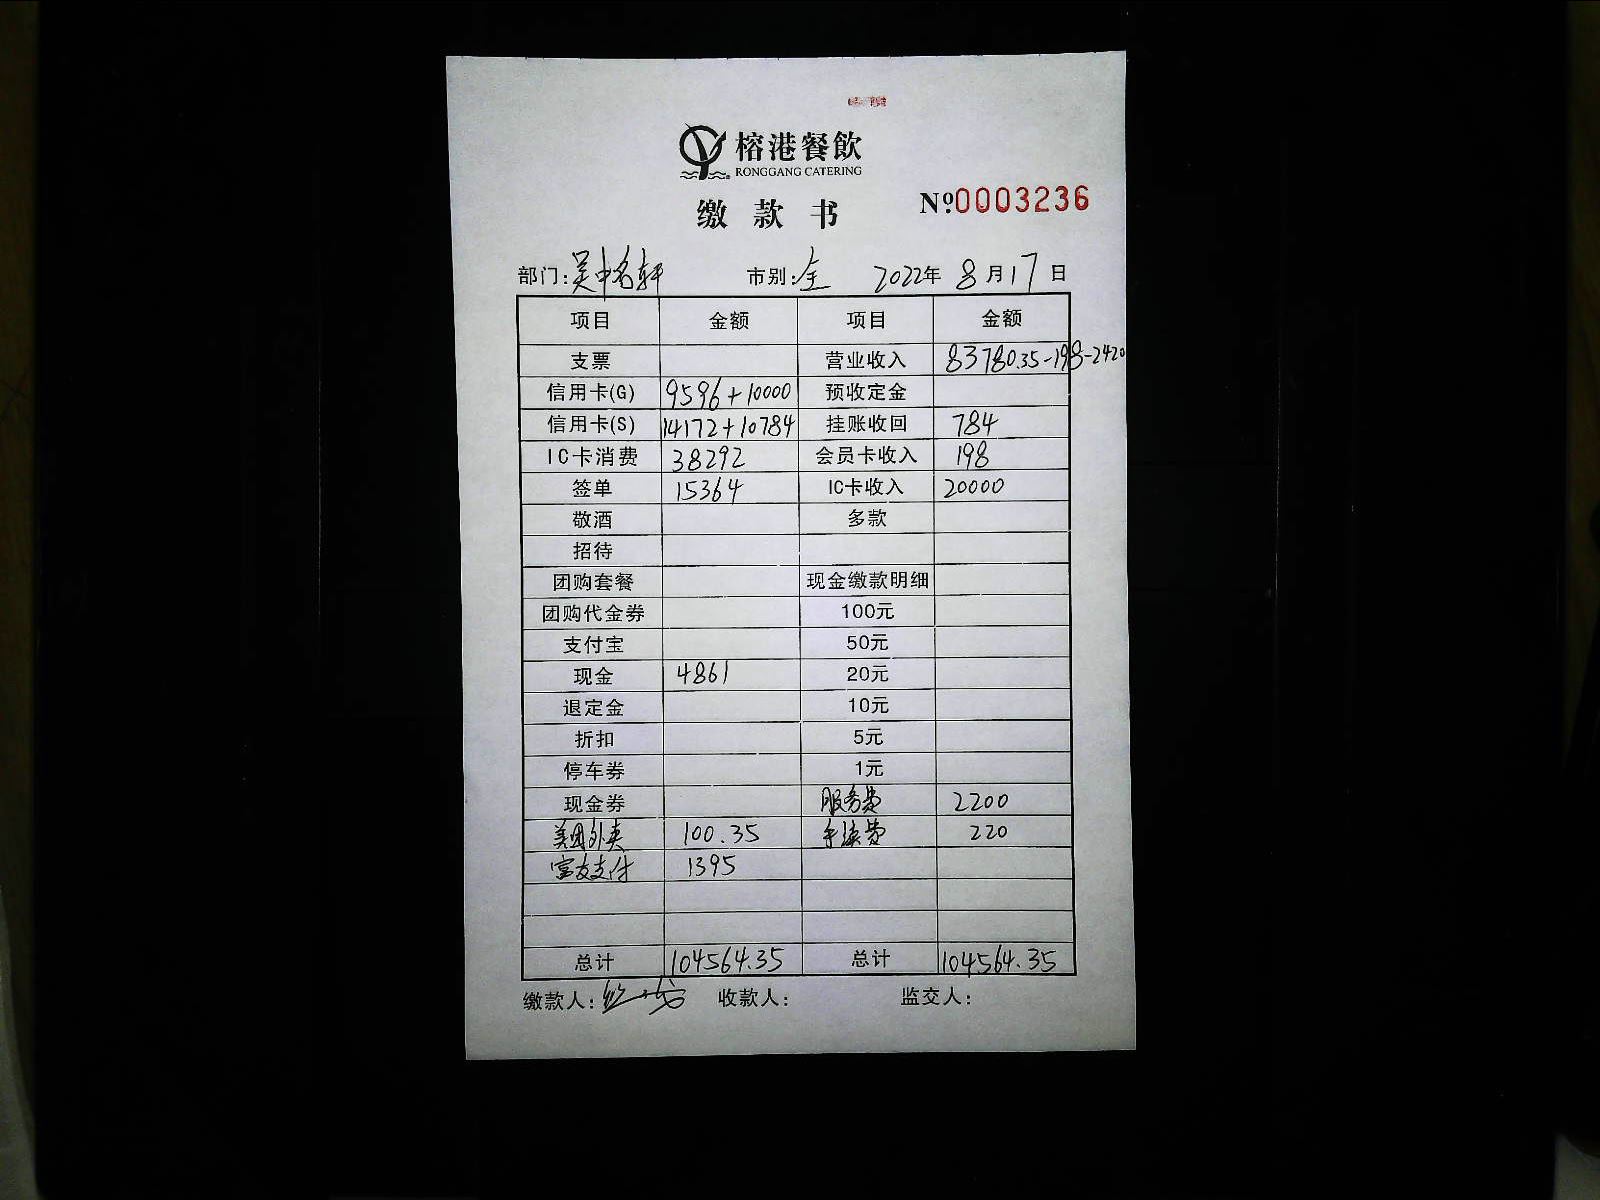 榕港餐飲
RONGGANG CATERING
缴款书
Nº0003236
部门:吴中名轩 市别:全 2022年8月17日
项目 金额 项目 金额
支票 营业收入 83780.35-198-2420
信用卡(G) 9596+10000 预收定金
信用卡(S) 14172+10784 挂账收回 784
IC卡消费 38292 会员卡收入 198
签单 15364 IC卡收入 20000
敬酒 多款
招待
团购套餐 现金缴款明细
团购代金券 100元
支付宝 50元
现金 4861 20元
退定金 10元
折扣 5元
停车券 1元
现金券 服务费 2200
美团外卖 100.35 手续费 220
富友支付 1395
总计 104564.35 总计 104564.35
缴款人: 收款人: 监交人: